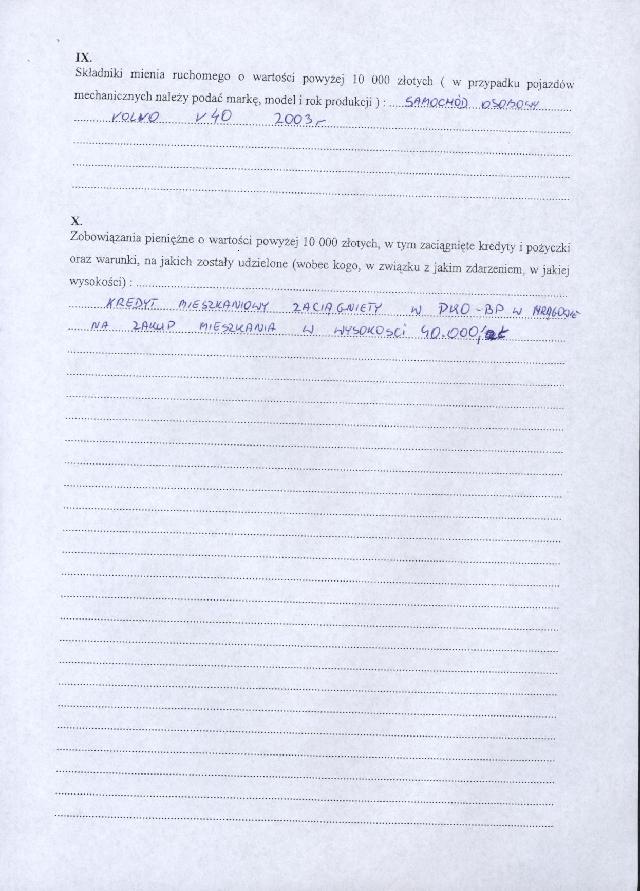 IX.
Składniki mienia ruchomego o wartości powyżej 10 000 złotych ( w przypadku pojazdów
mechanicznych należy podać markę, model i rok produkcji ) : SAMOCHÓD OSOBOWY
VOLVO V40 2003r
X.
Zobowiązania pieniężne o wartości powyżej 10 000 złotych, w tym zaciągnięte kredyty i pożyczki
oraz warunki, na jakich zostały udzielone (wobec kogo, w związku z jakim zdarzeniem, w jakiej
wysokości) :
KREDYT MIESZKANIOWY ZACIĄGNIETY W PKO-BP W MRĄGOWIE
NA ZAKUP MIESZKANIA W WYSOKOSCI 40.000,/zł